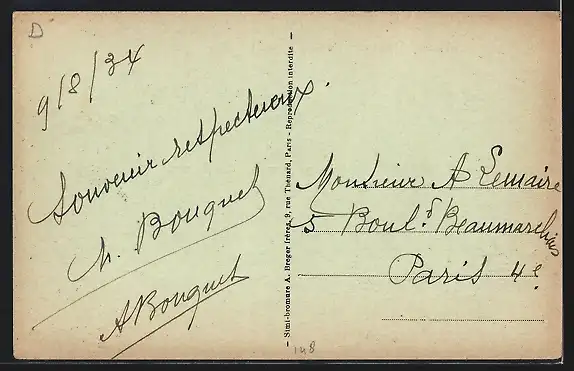 D
9/8/34
Souvenir respectueux.
M. Bouquet
A Bouquet
— Simi-bromure A. Breger frères, 9, rue Thénard, Paris - Reproduction interdite —
Monsieur A Lemaire
5 Boul.d Beaumarchais
Paris 4e.
148